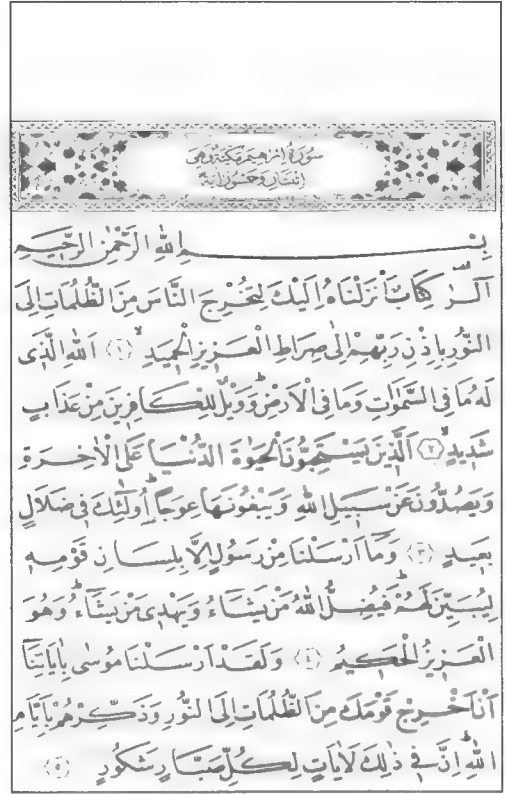 سُورَةُ اِبْرٰهِيمَ مَكِّيَّةٌ وَهِيَ
اِثْنَتَانِ وَخَمْسُونَ اٰيَةً
بِسْمِ اللهِ الرَّحْمٰنِ الرَّحِيمِ
الٓرٰ كِتَابٌ اَنْزَلْنَاهُ اِلَيْكَ لِتُخْرِجَ النَّاسَ مِنَ الظُّلُمَاتِ اِلَى
النُّورِ بِاِذْنِ رَبِّهِمْ اِلٰى صِرَاطِ الْعَزِيزِ الْحَمِيدِ ﴿١﴾ اَللهِ الَّذِى
لَهُ مَا فِى السَّمٰوَاتِ وَمَا فِى الْاَرْضِ وَوَيْلٌ لِلْكَافِرِينَ مِنْ عَذَابٍ
شَدِيدٍ ﴿٢﴾ اَلَّذِينَ يَسْتَحِبُّونَ الْحَيٰوةَ الدُّنْيَا عَلَى الْاٰخِرَةِ
وَيَصُدُّونَ عَنْ سَبِيلِ اللهِ وَيَبْغُونَهَا عِوَجًا اُولٰٓئِكَ فِى ضَلَالٍ
بَعِيدٍ ﴿٣﴾ وَمَٓا اَرْسَلْنَا مِنْ رَسُولٍ اِلَّا بِلِسَانِ قَوْمِهِ
لِيُبَيِّنَ لَهُمْ فَيُضِلُّ اللهُ مَنْ يَشَٓاءُ وَيَهْدِى مَنْ يَشَٓاءُ وَهُوَ
الْعَزِيزُ الْحَكِيمُ ﴿٤﴾ وَلَقَدْ اَرْسَلْنَا مُوسٰى بِاٰيَاتِنَٓا
اَنْ اَخْرِجْ قَوْمَكَ مِنَ الظُّلُمَاتِ اِلَى النُّورِ وَذَكِّرْهُمْ بِاَيَّامِ
اللهِ اِنَّ فِى ذٰلِكَ لَاٰيَاتٍ لِكُلِّ صَبَّارٍ شَكُورٍ ﴿٥﴾